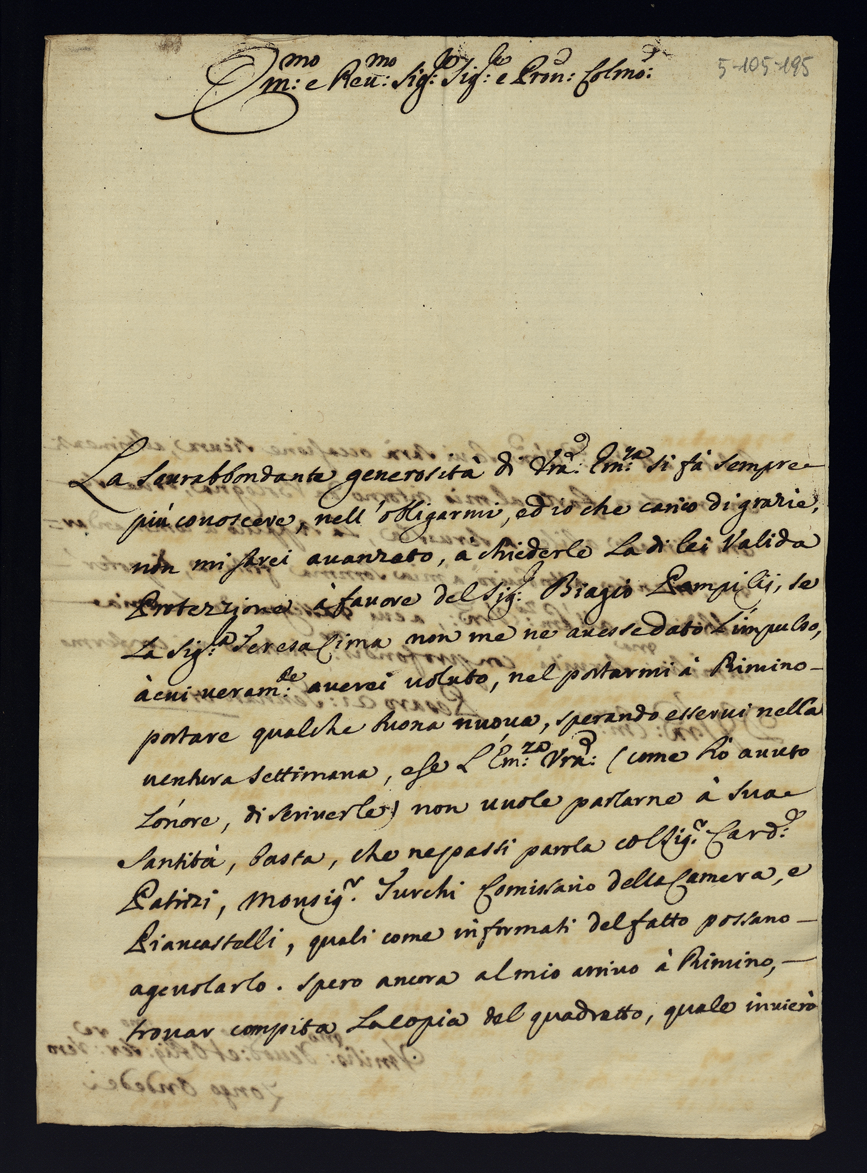 5-105-195
Em:mo e Reu:mo Sig:re Sig:re e Pron: Colmo:
La Sourabbondante generosità di Vra: Em:za si fà sempre
più conoscere, nell'obligarmi, ed io che carico di grazie,
non mi sarei auanzato, a chiederle La di lei Valida
Protezzione à fauore del Sig:re Biagio Pampilij, se
La Sig:ra Teresa Cima non me ne auesse dato L'impulso,
à cui ueram:te auerei uoluto, nel portarmi à Rimino
portare qualche buona nuoua, sperando esserui nella
uentura Settimana, e se L'Em:za Vra: (come hò auuto
L'onore, di scriuerle) non uuole parlarne à Sua
Santità, basta, che ne passi parola col Sig:r Card:
Patrizi, Monsig:r Turchi Comissario della Camera, e
Piancastelli, quali come informati del fatto possano
ageuolarlo. Spero ancora al mio arriuo à Rimino,
trouar compita La copia del quadretto, quale inuierò